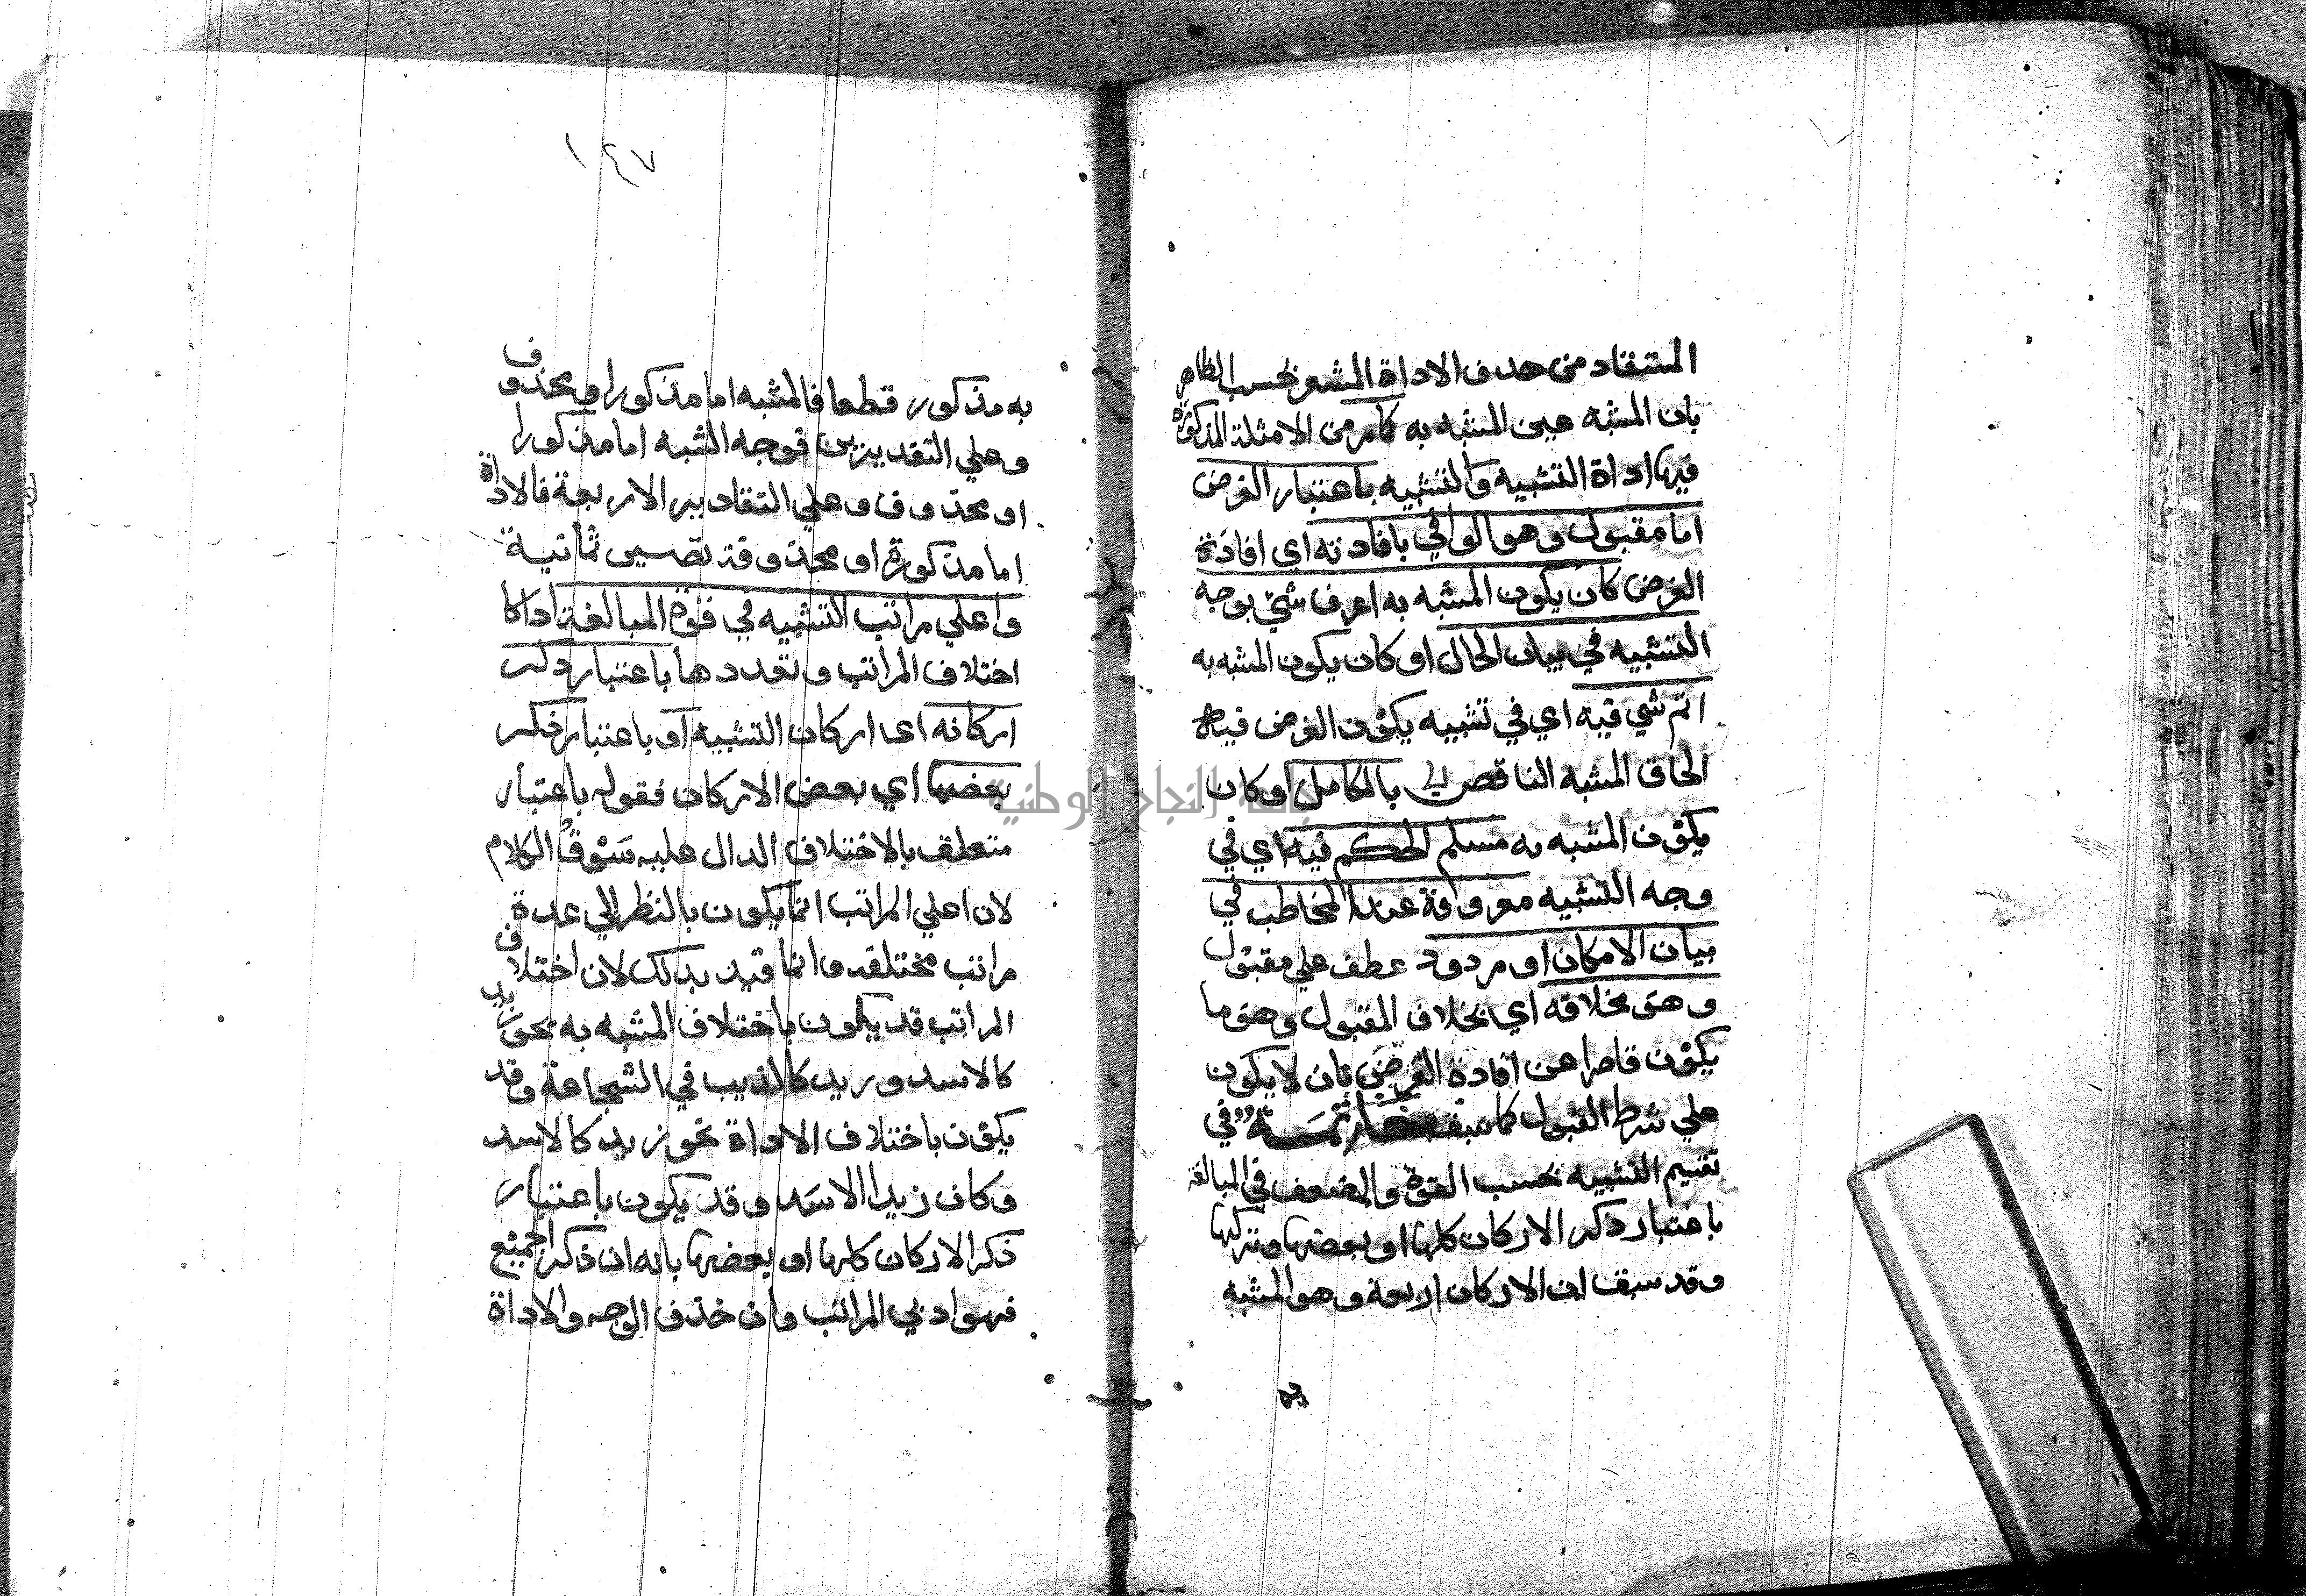 المستفاد من حذف الاداة المشعر بحسب الظاهر
بان المشبه عين المشبه به كما مر من الامثلة المذكورة
فيها اداة التشبيه والتشبيه باعتبار الغرض
اما مقبول وهو الوافي بافادته اي افادة
الغرض كان يكون المشبه به اعرف شيء بوجه
التشبيه في بيان الحال او كان يكون المشبه به
اتم شي فيه اي في تشبيه يكون الغرض فيه
الحاق المشبه الناقص بالكامل او كان
يكون المشبه به مسلم الحكم فيه اي في
وجه التشبيه معروفة عند المخاطب في
بيان الامكان او مردود عطف علي مقبول
وهو بخلافه اي بخلاف المقبول وهو ما
يكون قاصرا عن افادة الغرض بان لا يكون
علي شرط القبول كما سبق خاتمة في
تقسيم التشبيه بحسب القوة والضعف في المبالغة
باعتبار ذكر الاركان كلها او بعضها وتركها
وقد سبق ان الاركان اربعة وهو المشبه
به
١٤٧
به مذكور قطعا فالمشبه اما مذكورا او محذوف
وعلي التقديرين فوجه الشبه اما مذكورا
او محذوف وعلي التقادير الاربعة فالاداة
اما مذكورة او محذوفة تصير ثمانية
واعلي مراتب التشبيه في قوة المبالغة اذا كا
اختلاف المراتب وتعددها باعتبار ذكر
اركانه اي اركان التشبيه او باعتبار ذكر
بعضها اي بعض الاركان فقوله باعتبار
متعلق بالاختلاف الدال عليه سَوْقُ الكلام
لان اعلي المراتب انما يكون بالنظر الي عدة
مراتب مختلفة وانما قيد بذلك لان اختلاف
المراتب قد يكون باختلاف المشبه به نحو زيد
كالاسد وزيد كالذيب في الشجاعة وقد
يكون باختلاف الاداة نحو زيد كالاسد
وكان زيدا الاسد وقد يكون باعتبار
ذكر الاركان كلها او بعضها بانه ان ذكر الجميع
فهو ادني المراتب وان حذف الوجه والاداة
جامعة النجاح الوطنية